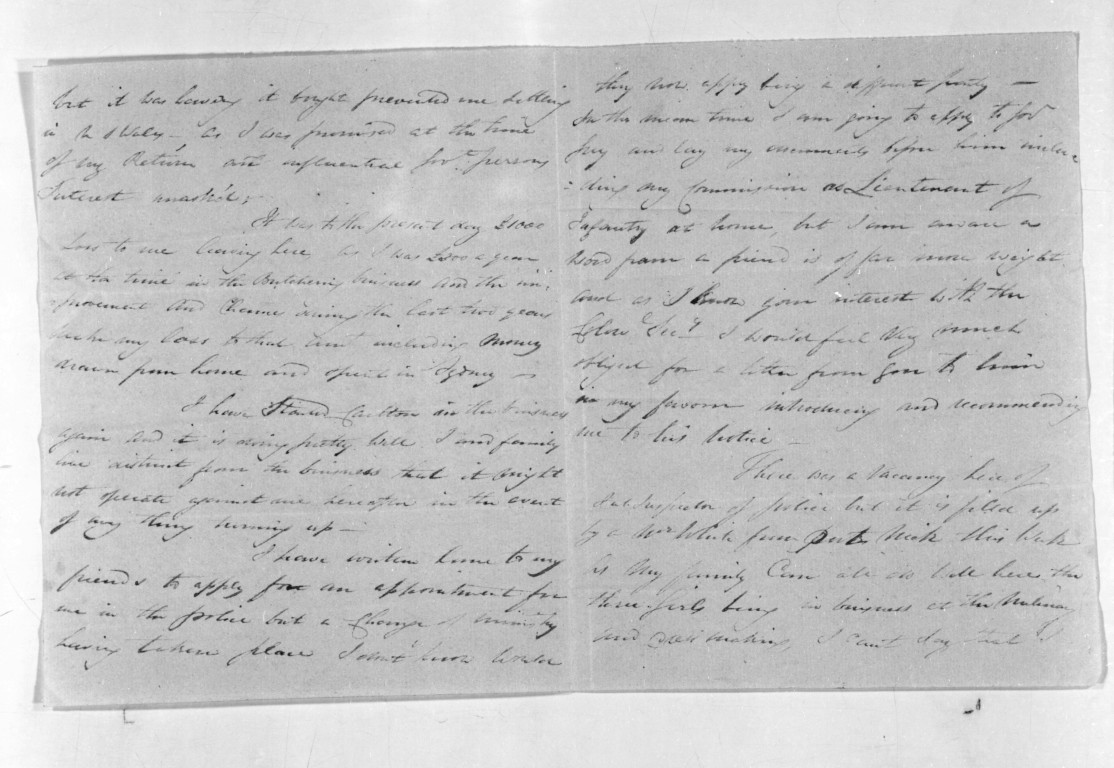 but it was having it bought prevented me settling
in N S Wales – as I was promised at the time
of my Return and influential Govt. persons
Interest
It was to the present day £1000
Loss to me leaving here, as I was £200 a year
at the time in the Butchering business and the im-
provement and Revenue during the last two years
my loss to that, isn't including Money
drawn from home and spent in Sydney –
I have Started Carlton in the business
again and it is doing pretty well I and family
live distinct from the business that it might
not operate against me hereafter in the event
of any thing turning up –
I have written home to my
friends to apply for an appointment for
me in the police but a Change of ministry
having taken place I don't know would
they now apply being a different party –
In the mean time I am going to apply to Govr
and lay my documents before him inclu-
-ding my Commission as Lieutenant of
Infantry at home, but I am aware a
word from a friend is of far more weight
and as I know your interest with the
Colonl. Secy. I would feel very much
obliged for a letter from you to him
in my favour introducing and recommending
me to his Notice –
There was a vacancy here of
Sub Inspector of police but it is filled up
by a Mr White from Port this Week
My family Can all do well here the
three Girls being in business at the Milinary
and dressmaking, I can't say that I